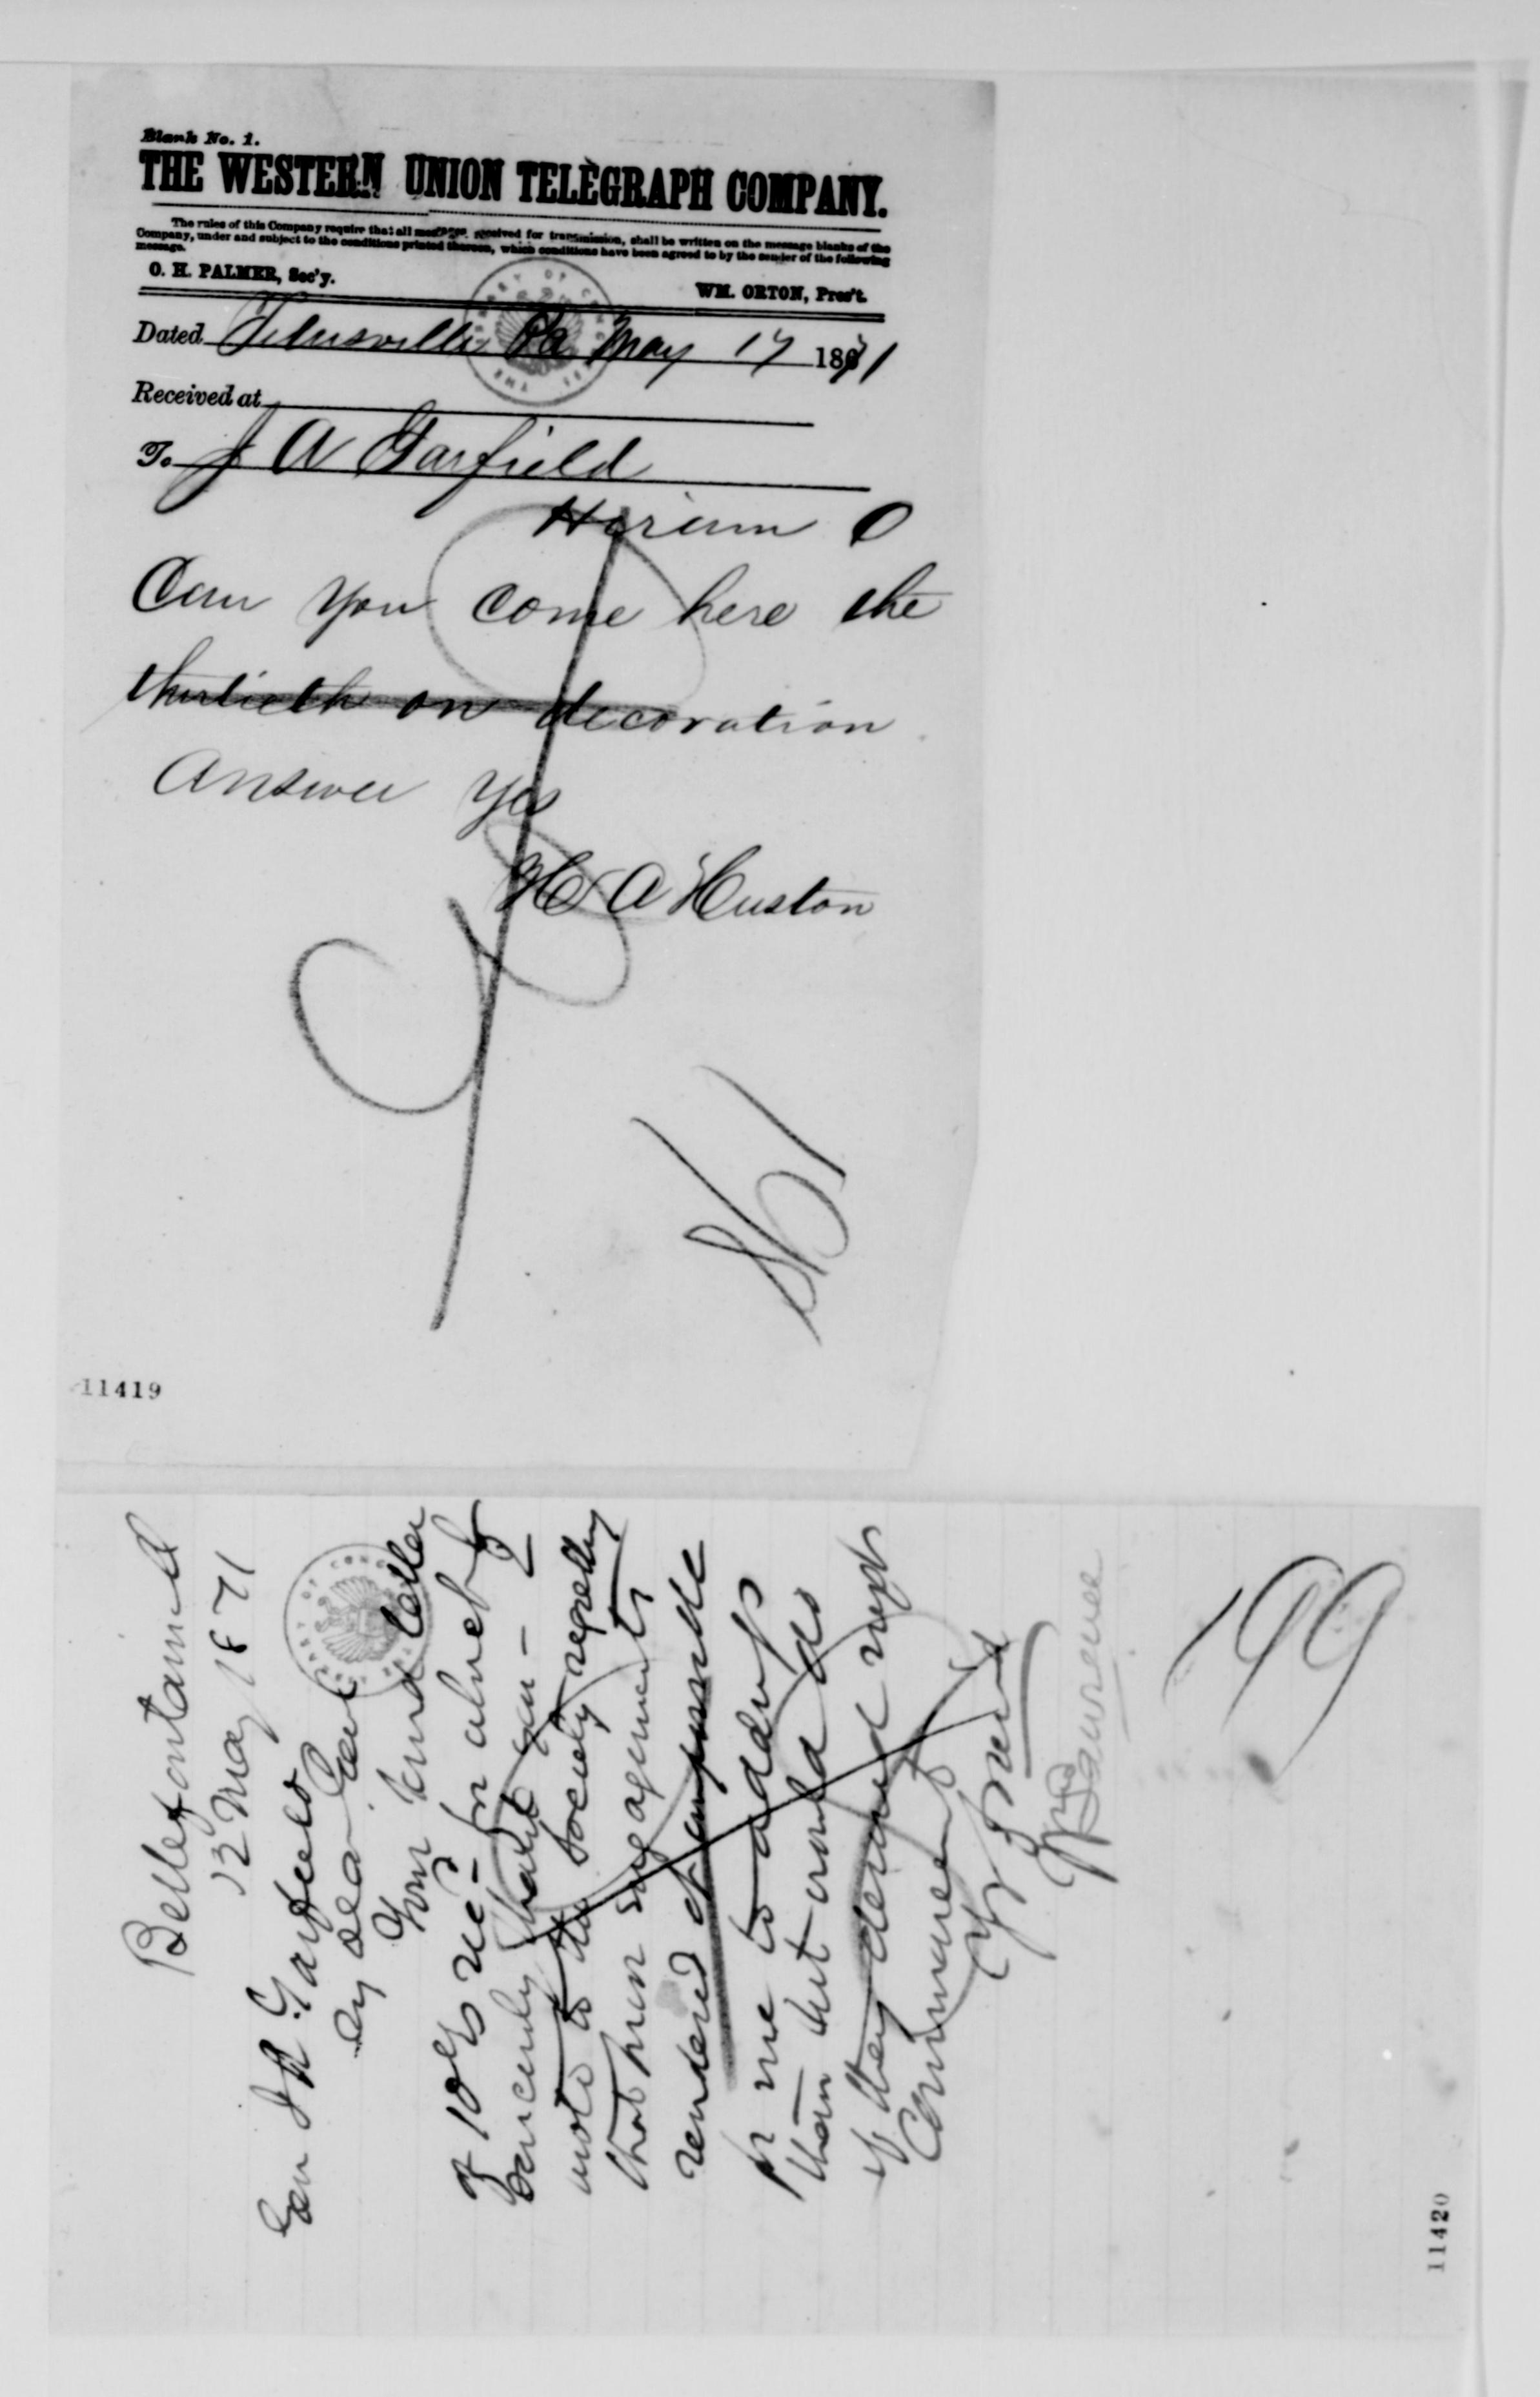 Blank No. 1.
THE WESTERN UNION TELEGRAPH COMPANY.
The rules of this Company require that all messages received for transmission, shall be written on the message blanks of the
Company, under and subject to the conditions printed thereon, which conditions have been agreed to by the sender of the following
message.
O. H. PALMER, Sec'y.
WM. ORTON, Pres't.
Dated Titusville Pa May 17 1871
Received at
To J A Garfield
Hiram O
Can you come here the
thirtieth on decoration
Answer yes
H A Huston
198
11419
Bellefontaine O
12 May 1871
Gen J A Garfield
My dear Gen
Your kind letter
of 10th rec'd for which I
sincerely thank you -
wrote to the Society regretting
that prior engagements
rendered it impossible
for me to address
them but would do
if they desired next
Commencement
Yr friend
Wm Lawrence
199
11420